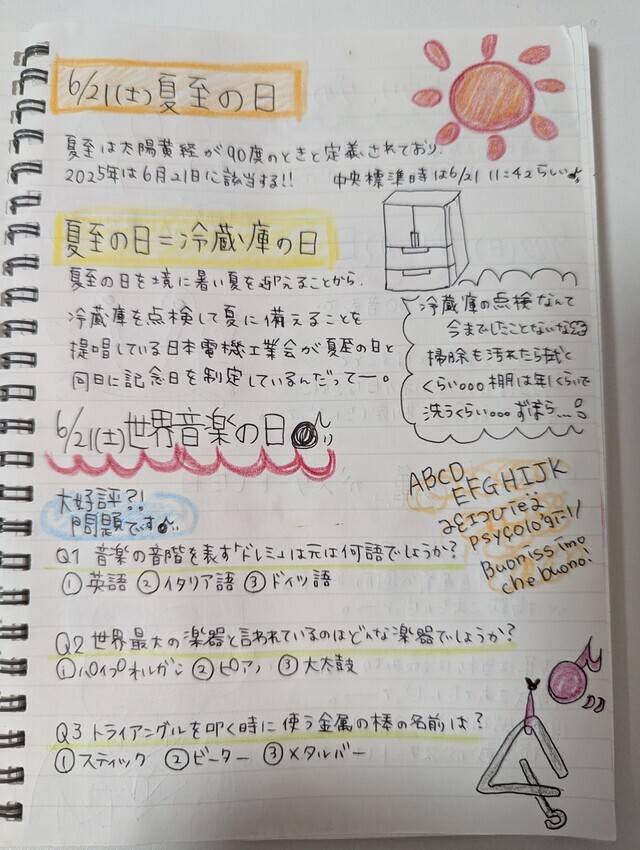 6/21(土)夏至の日
夏至は太陽黄経が90度のときと定義されており、
2025年は6月21日に該当する!! 中央標準時は6/21 11:42らしい♪
夏至の日=冷蔵庫の日
夏至の日を境に暑い夏を迎えることから、
冷蔵庫を点検して夏に備えることを
提唱している日本電機工業会が夏至の日と
同日に記念日を制定しているんだってー。
冷蔵庫の点検なんて
今までしたことないな
掃除も汚れたら拭く
くらい。。。棚は年1くらいで
洗うくらい。。。ずぼら...
6/21(土)世界音楽の日
大好評?!
問題です♪
ABCD
EFGHIJK
Buonissimo
che buono!
Q1 音楽の音階を表す「ドレミ」は元は何語でしょうか?
①英語 ②イタリア語 ③ドイツ語
Q2 世界最大の楽器と言われているのはどんな楽器でしょうか?
①パイプオルガン ②ピアノ ③大太鼓
Q3 トライアングルを叩く時に使う金属の棒の名前は?
①スティック ②ビーター ③メタルバー